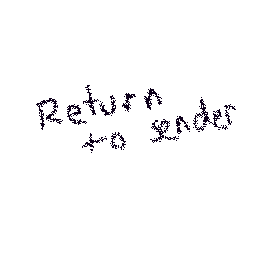 Return
to sender